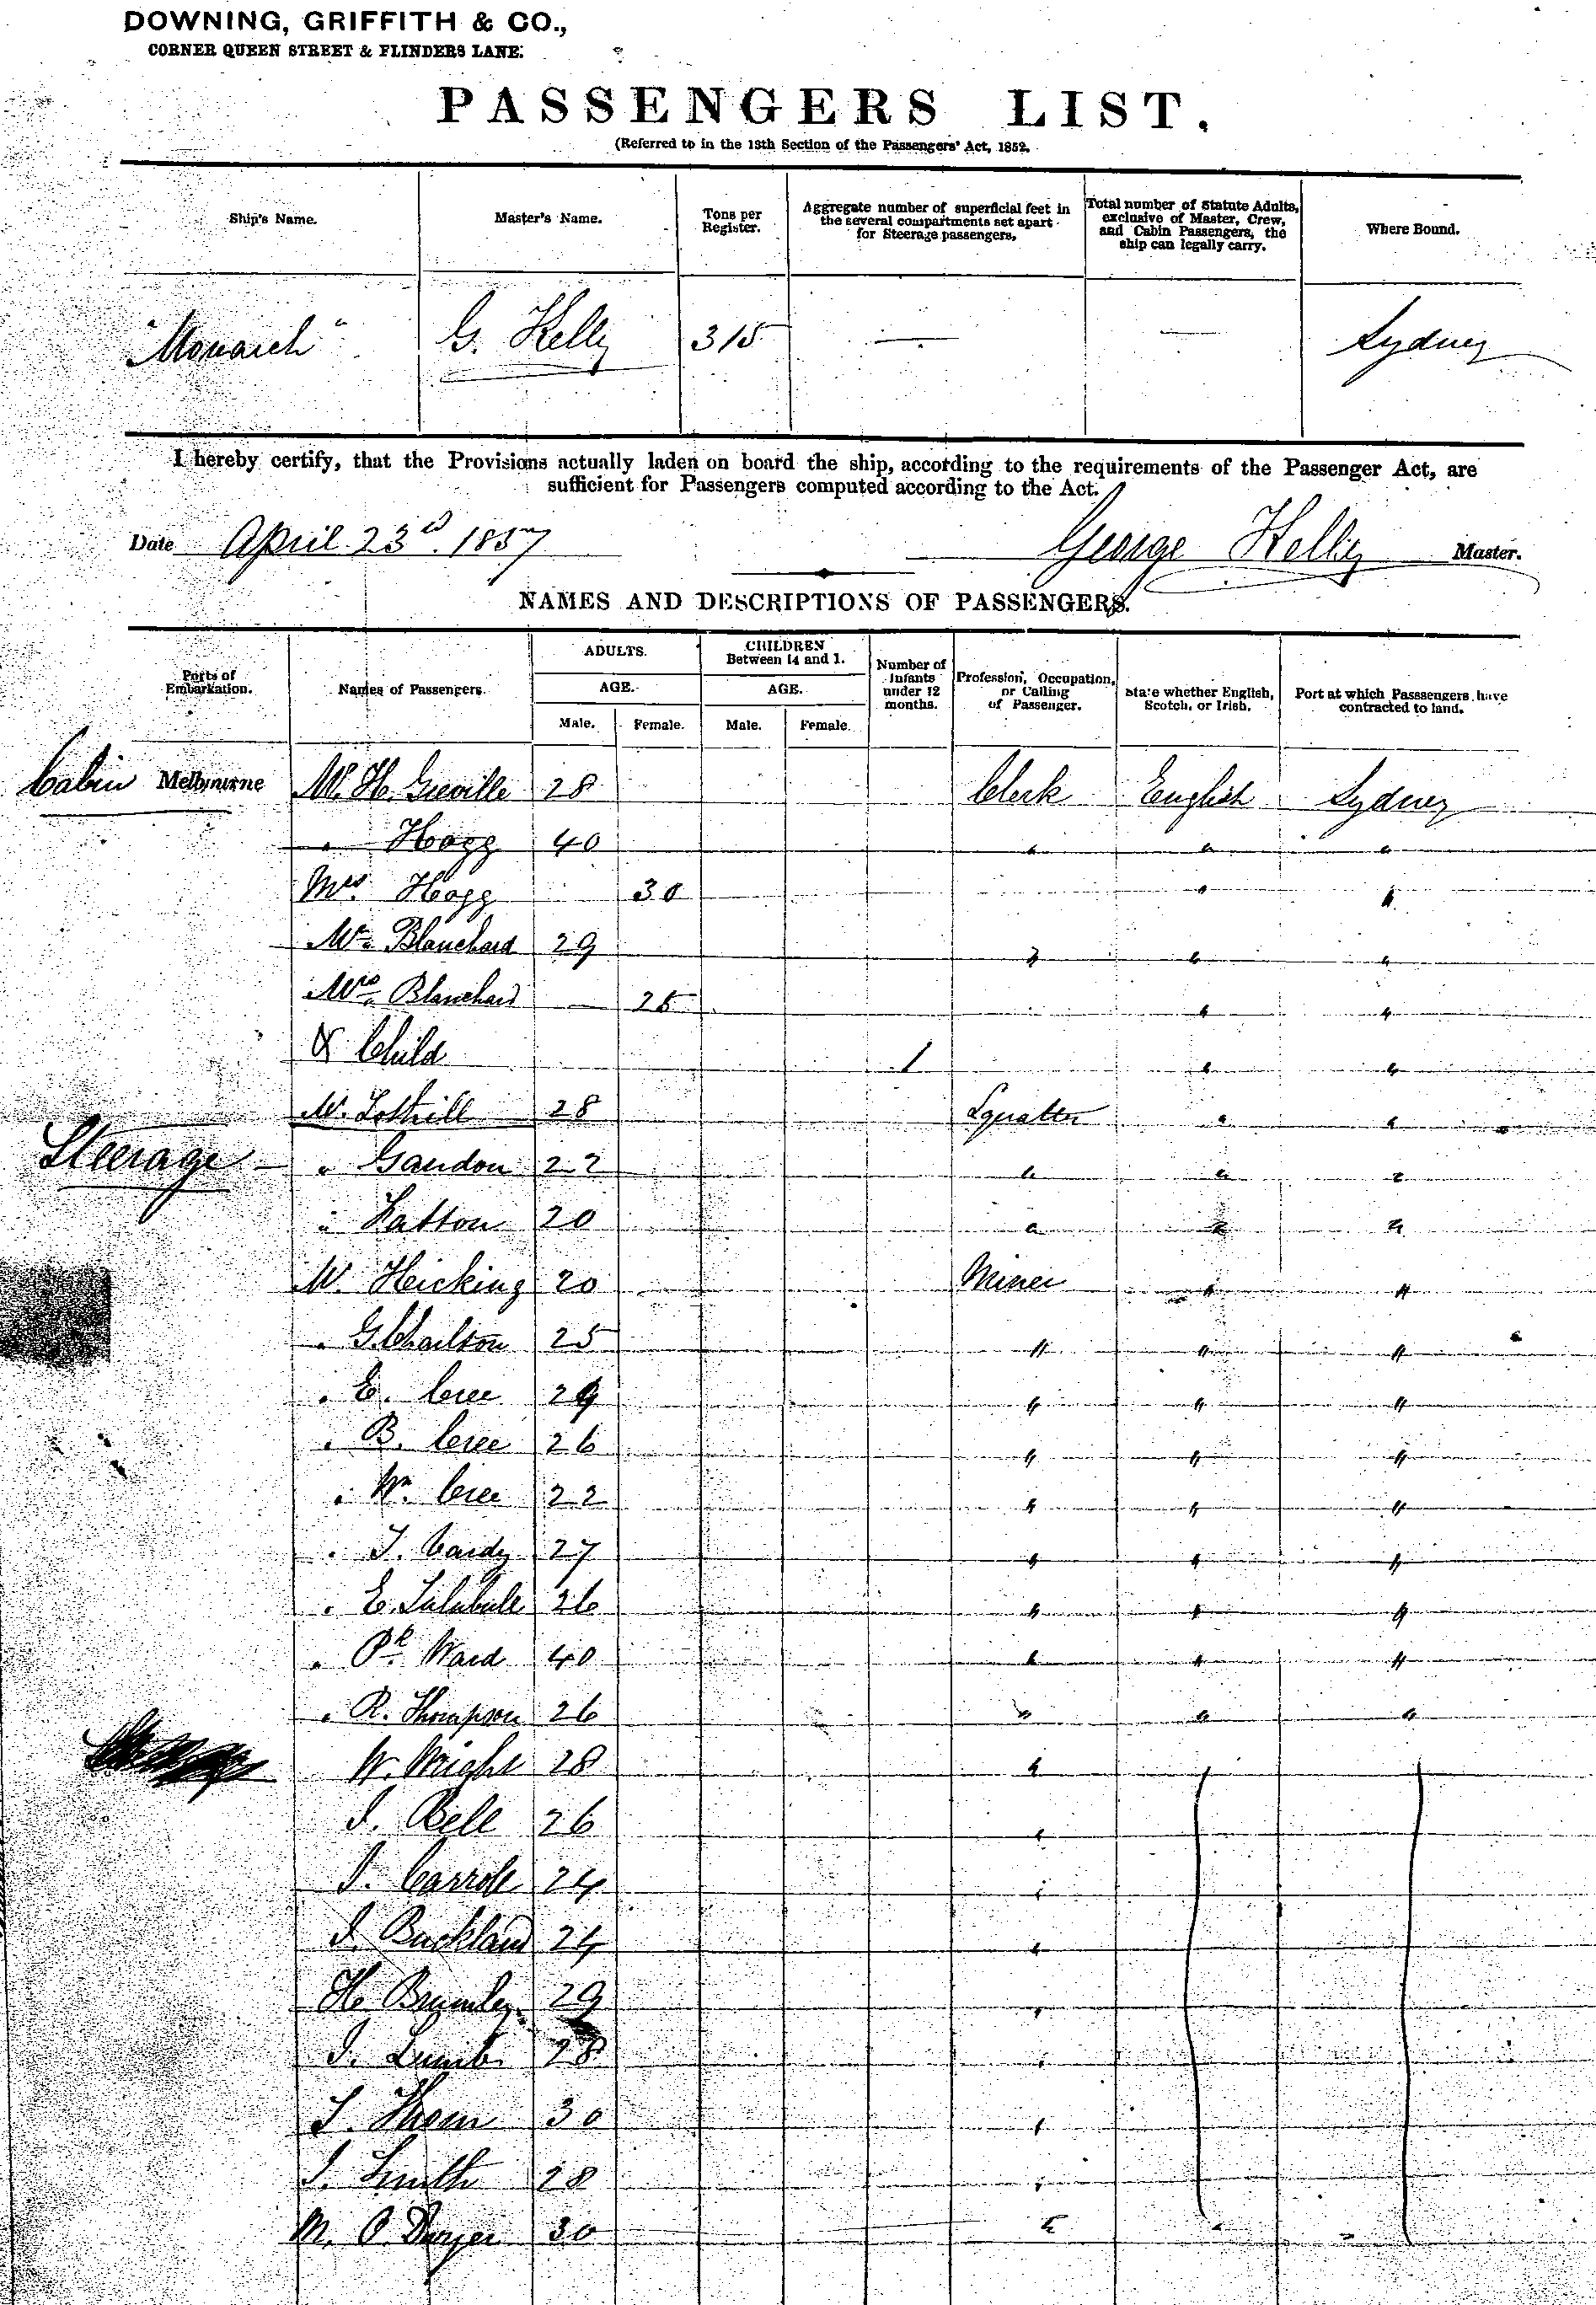 DOWNING, GRIFFITH & CO.,
CORNER QUEEN STREET & FLINDERS LANE.
PASSENGERS LIST.
(Referred to in the 13th Section of the Passengers' Act, 1852.
Ship's Name. Master's Name. Tons per Register. Aggregate number of superficial feet in the several compartments set apart for Steerage passengers. Total number of Statute Adults, exclusive of Master, Crew, and Cabin Passengers, the ship can legally carry. Where Bound.
"Monarch" G. Kelly 315 — — Sydney
I hereby certify, that the Provisions actually laden on board the ship, according to the requirements of the Passenger Act, are
sufficient for Passengers computed according to the Act.
Date April 23rd. 1857 George Kelly Master.
NAMES AND DESCRIPTIONS OF PASSENGERS.
Ports of Embarkation. Names of Passengers. ADULTS. AGE. Male. Female. CHILDREN Between 14 and 1. AGE. Male. Female. Number of Infants under 12 months. Profession, Occupation, or Calling of Passenger. State whether English, Scotch, or Irish. Port at which Passsengers have contracted to land.
Cabin Melbourne Mr. H. Greville 28 Clerk English Sydney
" Hogg 40 " " "
Mrs. Hogg 30 " "
Mr. Blanchard 29 " " "
Mrs. Blanchard 25 " "
& Child 1 " "
M. 28 Squatter " "
Steerage " Gaudon 22 " " "
" 20 " " "
W. Hicking 20 Miner " "
" G. Charlton 25 " " "
" E. Cree 29 " " "
" B. Cree 26 " " "
" Wm. Cree 22 " " "
" J. Cardy 27 " " "
" E. 26 " " "
" Pk. Ward 40 " " "
" R. Thompson 26 " " "
W. Wright 28 "
J. Bell 26 "
J. Carroll 24 "
J. Buckland 24 "
H. Brumley 29 "
J. Lumb 28 "
J. Thom 30 "
J. Smith 28 "
M. O. Dwyer 30 " " "